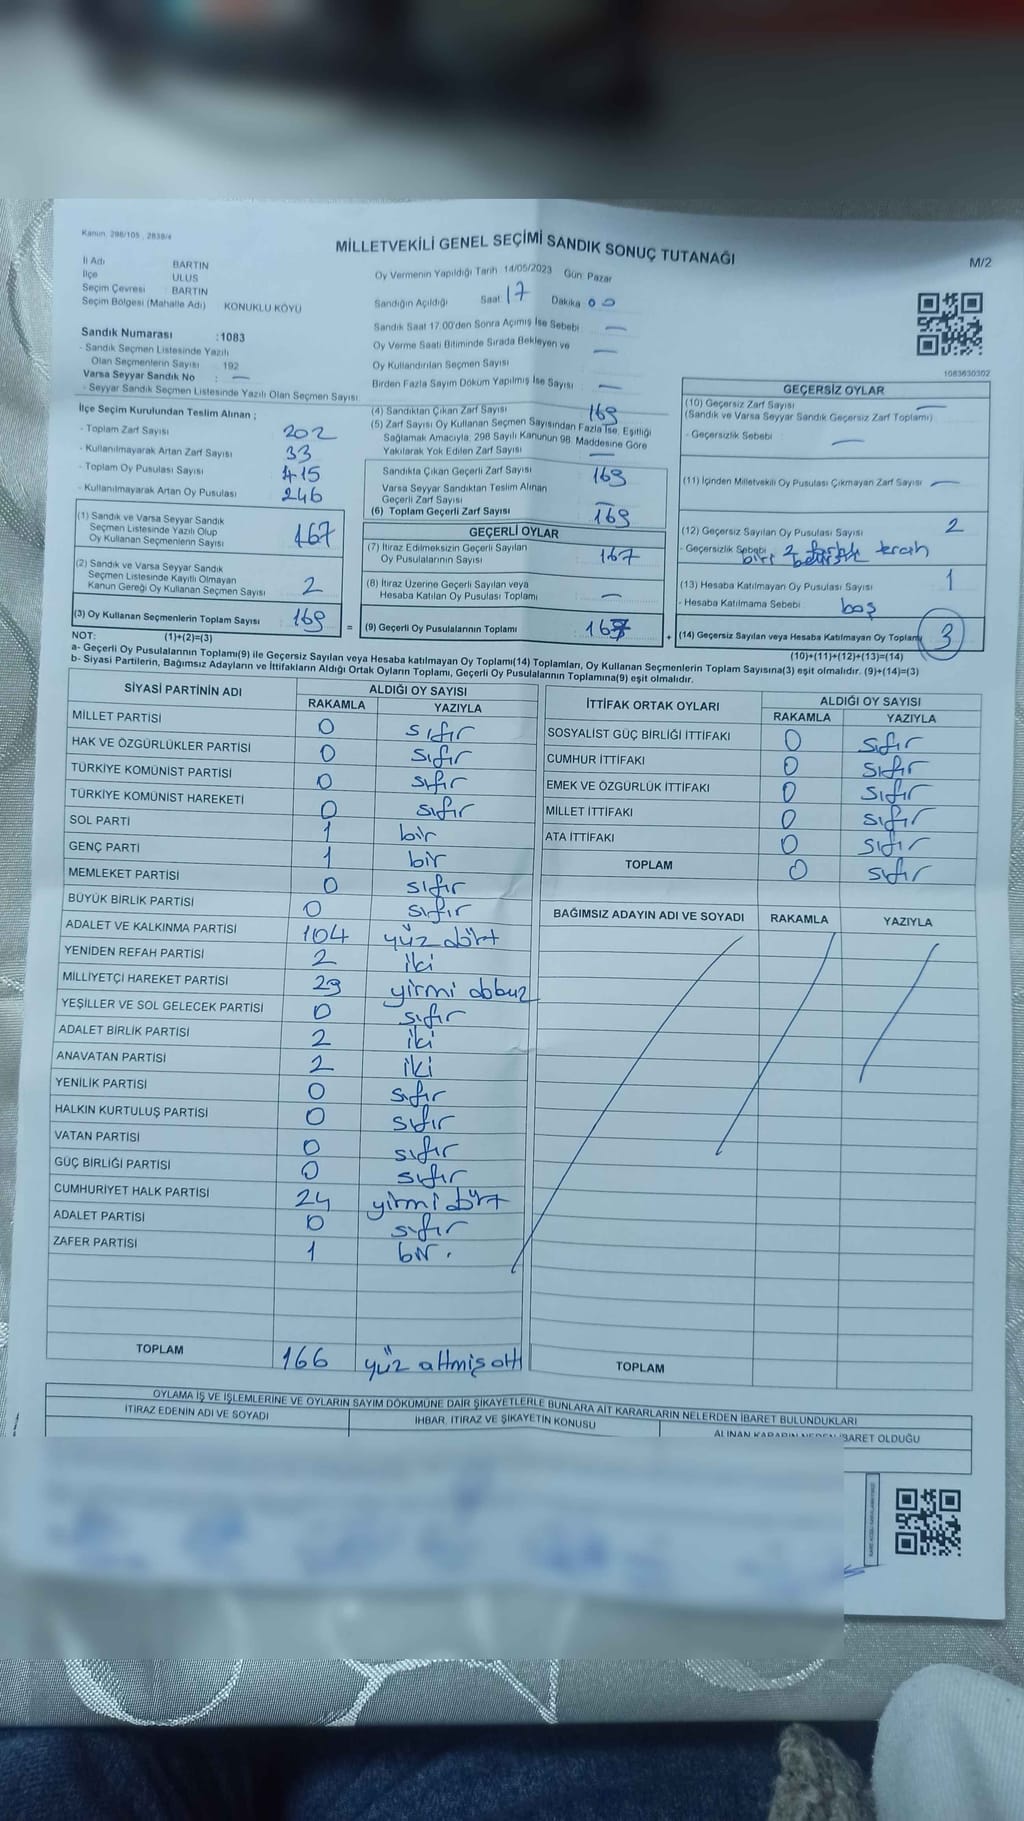 Kanun, 298/105 , 2839/4
MİLLETVEKİLİ GENEL SEÇİMİ SANDIK SONUÇ TUTANAĞI
M/2
İl Adı BARTIN
İlçe ULUS
Seçim Çevresi : BARTIN
Seçim Bölgesi (Mahalle Adı) KONUKLU KÖYÜ
Sandık Numarası :1083
- Sandık Seçmen Listesinde Yazılı
Olan Seçmenlerin Sayısı : 192
Varsa Seyyar Sandık No : —
- Seyyar Sandık Seçmen Listesinde Yazılı Olan Seçmen Sayısı:
Oy Vermenin Yapıldığı Tarih 14/05/2023 Gün: Pazar
Sandığın Açıldığı Saat 17 Dakika 00
Sandık Saat 17.00'den Sonra Açımış İse Sebebi —
Oy Verme Saati Bitiminde Sırada Bekleyen ve —
Oy Kullandırılan Seçmen Sayısı
Birden Fazla Sayım Döküm Yapılmış İse Sayısı —
1083630302
İlçe Seçim Kurulundan Teslim Alınan ;
- Toplam Zarf Sayısı 202
- Kullanılmayarak Artan Zarf Sayısı 33
- Toplam Oy Pusulası Sayısı 415
- Kullanılmayarak Artan Oy Pusulası 246
(1) Sandık ve Varsa Seyyar Sandık
Seçmen Listesinde Yazılı Olup
Oy Kullanan Seçmenlerin Sayısı 167
(2) Sandık ve Varsa Seyyar Sandık
Seçmen Listesinde Kayıtlı Olmayan
Kanun Gereği Oy Kullanan Seçmen Sayısı 2
(3) Oy Kullanan Seçmenlerin Toplam Sayısı 169 =
(4) Sandıktan Çıkan Zarf Sayısı 169
(5) Zarf Sayısı Oy Kullanan Seçmen Sayısından Fazla İse, Eşitliği
Sağlamak Amacıyla, 298 Sayılı Kanunun 98. Maddesine Göre
Yakılarak Yok Edilen Zarf Sayısı —
Sandıkta Çıkan Geçerli Zarf Sayısı 169
Varsa Seyyar Sandıktan Teslim Alınan
Geçerli Zarf Sayısı —
(6) Toplam Geçerli Zarf Sayısı 169
GEÇERLİ OYLAR
(7) İtiraz Edilmeksizin Geçerli Sayılan
Oy Pusulalarının Sayısı : 167
(8) İtiraz Üzerine Geçerli Sayılan veya
Hesaba Katılan Oy Pusulası Toplamı : —
(9) Geçerli Oy Pusulalarının Toplamı : 167 +
GEÇERSİZ OYLAR
(10) Geçersiz Zarf Sayısı —
(Sandık ve Varsa Seyyar Sandık Geçersiz Zarf Toplamı)
- Geçersizlik Sebebi : —
(11) İçinden Milletvekili Oy Pusulası Çıkmayan Zarf Sayısı —
(12) Geçersiz Sayılan Oy Pusulası Sayısı 2
- Geçersizlik Sebebi 2 tercih
(13) Hesaba Katılmayan Oy Pusulası Sayısı 1
- Hesaba Katılmama Sebebi : boş
(14) Geçersiz Sayılan veya Hesaba Katılmayan Oy Toplamı 3
NOT: (1)+(2)=(3)
(10)+(11)+(12)+(13)=(14)
a- Geçerli Oy Pusulalarının Toplamı(9) ile Geçersiz Sayılan veya Hesaba katılmayan Oy Toplamı(14) Toplamları, Oy Kullanan Seçmenlerin Toplam Sayısına(3) eşit olmalıdır. (9)+(14)=(3)
b- Siyasi Partilerin, Bağımsız Adayların ve İttifakların Aldığı Ortak Oyların Toplamı, Geçerli Oy Pusulalarının Toplamına(9) eşit olmalıdır.
SİYASİ PARTİNİN ADI ALDIĞI OY SAYISI
RAKAMLA YAZIYLA
MİLLET PARTİSİ 0 sıfır
HAK VE ÖZGÜRLÜKLER PARTİSİ 0 sıfır
TÜRKİYE KOMÜNİST PARTİSİ 0 sıfır
TÜRKİYE KOMÜNİST HAREKETİ 0 sıfır
SOL PARTİ 1 bir
GENÇ PARTİ 1 bir
MEMLEKET PARTİSİ 0 sıfır
BÜYÜK BİRLİK PARTİSİ 0 sıfır
ADALET VE KALKINMA PARTİSİ 104 yüz dört
YENİDEN REFAH PARTİSİ 2 iki
MİLLİYETÇİ HAREKET PARTİSİ 29 yirmi dokuz
YEŞİLLER VE SOL GELECEK PARTİSİ 0 sıfır
ADALET BİRLİK PARTİSİ 2 iki
ANAVATAN PARTİSİ 2 iki
YENİLİK PARTİSİ 0 sıfır
HALKIN KURTULUŞ PARTİSİ 0 sıfır
VATAN PARTİSİ 0 sıfır
GÜÇ BİRLİĞİ PARTİSİ 0 sıfır
CUMHURİYET HALK PARTİSİ 24 yirmi dört
ADALET PARTİSİ 0 sıfır
ZAFER PARTİSİ 1 bir.
TOPLAM 166 yüz altmış altı
İTTİFAK ORTAK OYLARI ALDIĞI OY SAYISI
RAKAMLA YAZIYLA
SOSYALİST GÜÇ BİRLİĞİ İTTİFAKI 0 sıfır
CUMHUR İTTİFAKI 0 sıfır
EMEK VE ÖZGÜRLÜK İTTİFAKI 0 sıfır
MİLLET İTTİFAKI 0 sıfır
ATA İTTİFAKI 0 sıfır
TOPLAM 0 sıfır
BAĞIMSIZ ADAYIN ADI VE SOYADI RAKAMLA YAZIYLA
TOPLAM
OYLAMA İŞ VE İŞLEMLERİNE VE OYLARIN SAYIM DÖKÜMÜNE DAİR ŞİKAYETLERLE BUNLARA AİT KARARLARIN NELERDEN İBARET BULUNDUKLARI
İTİRAZ EDENİN ADI VE SOYADI İHBAR, İTİRAZ VE ŞİKAYETİN KONUSU ALINAN KARARIN NEDEN İBARET OLDUĞU